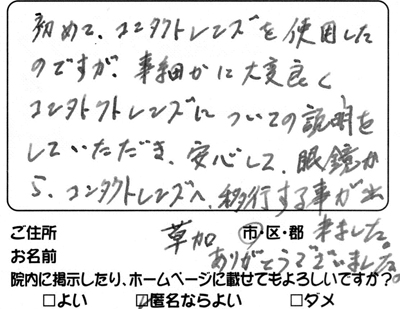 初めて、コンタクトレンズを使用した
のですが、事細かに大変良く
コンタクトレンズについての説明を
していただき、安心して、眼鏡か
ら、コンタクトレンズへ、移行する事が出
ご住所 草加 市・区・郡 来ました。
お名前 ありがとうございました。
院内に掲示したり、ホームページに載せてもよろしいですか?
□よい ☑匿名ならよい □ダメ